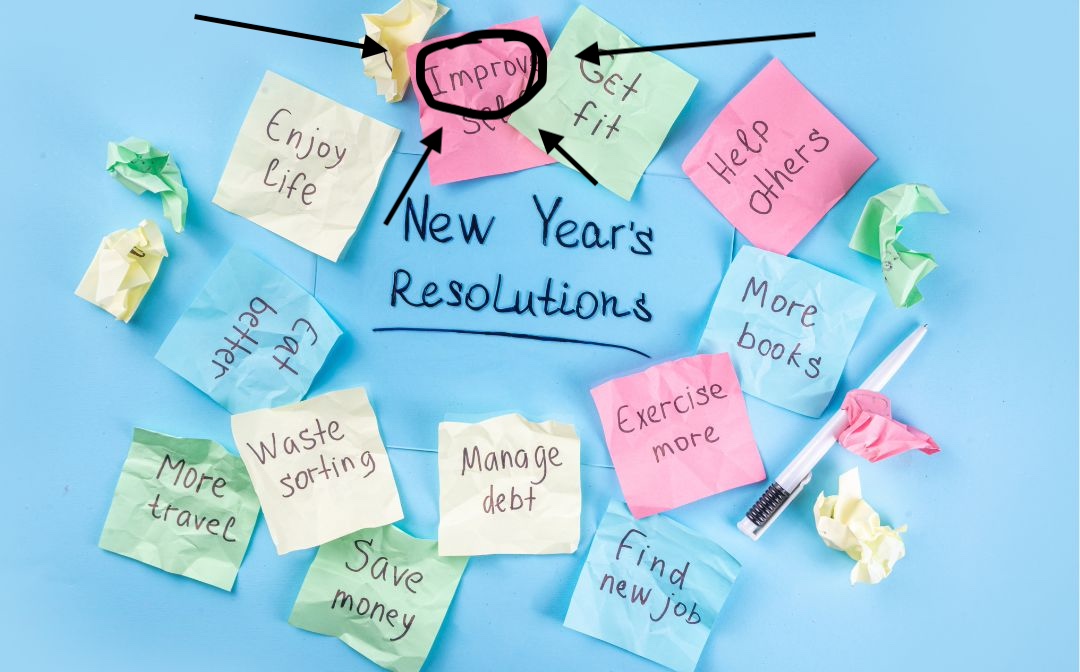 Improv
Sel
Get
fit
Enjoy
life
Help
Others
New Year's
Resolutions
Eat
better
More
books
Exercise
more
Waste
sorting
Manage
debt
More
travel
Save
money
Find
new job